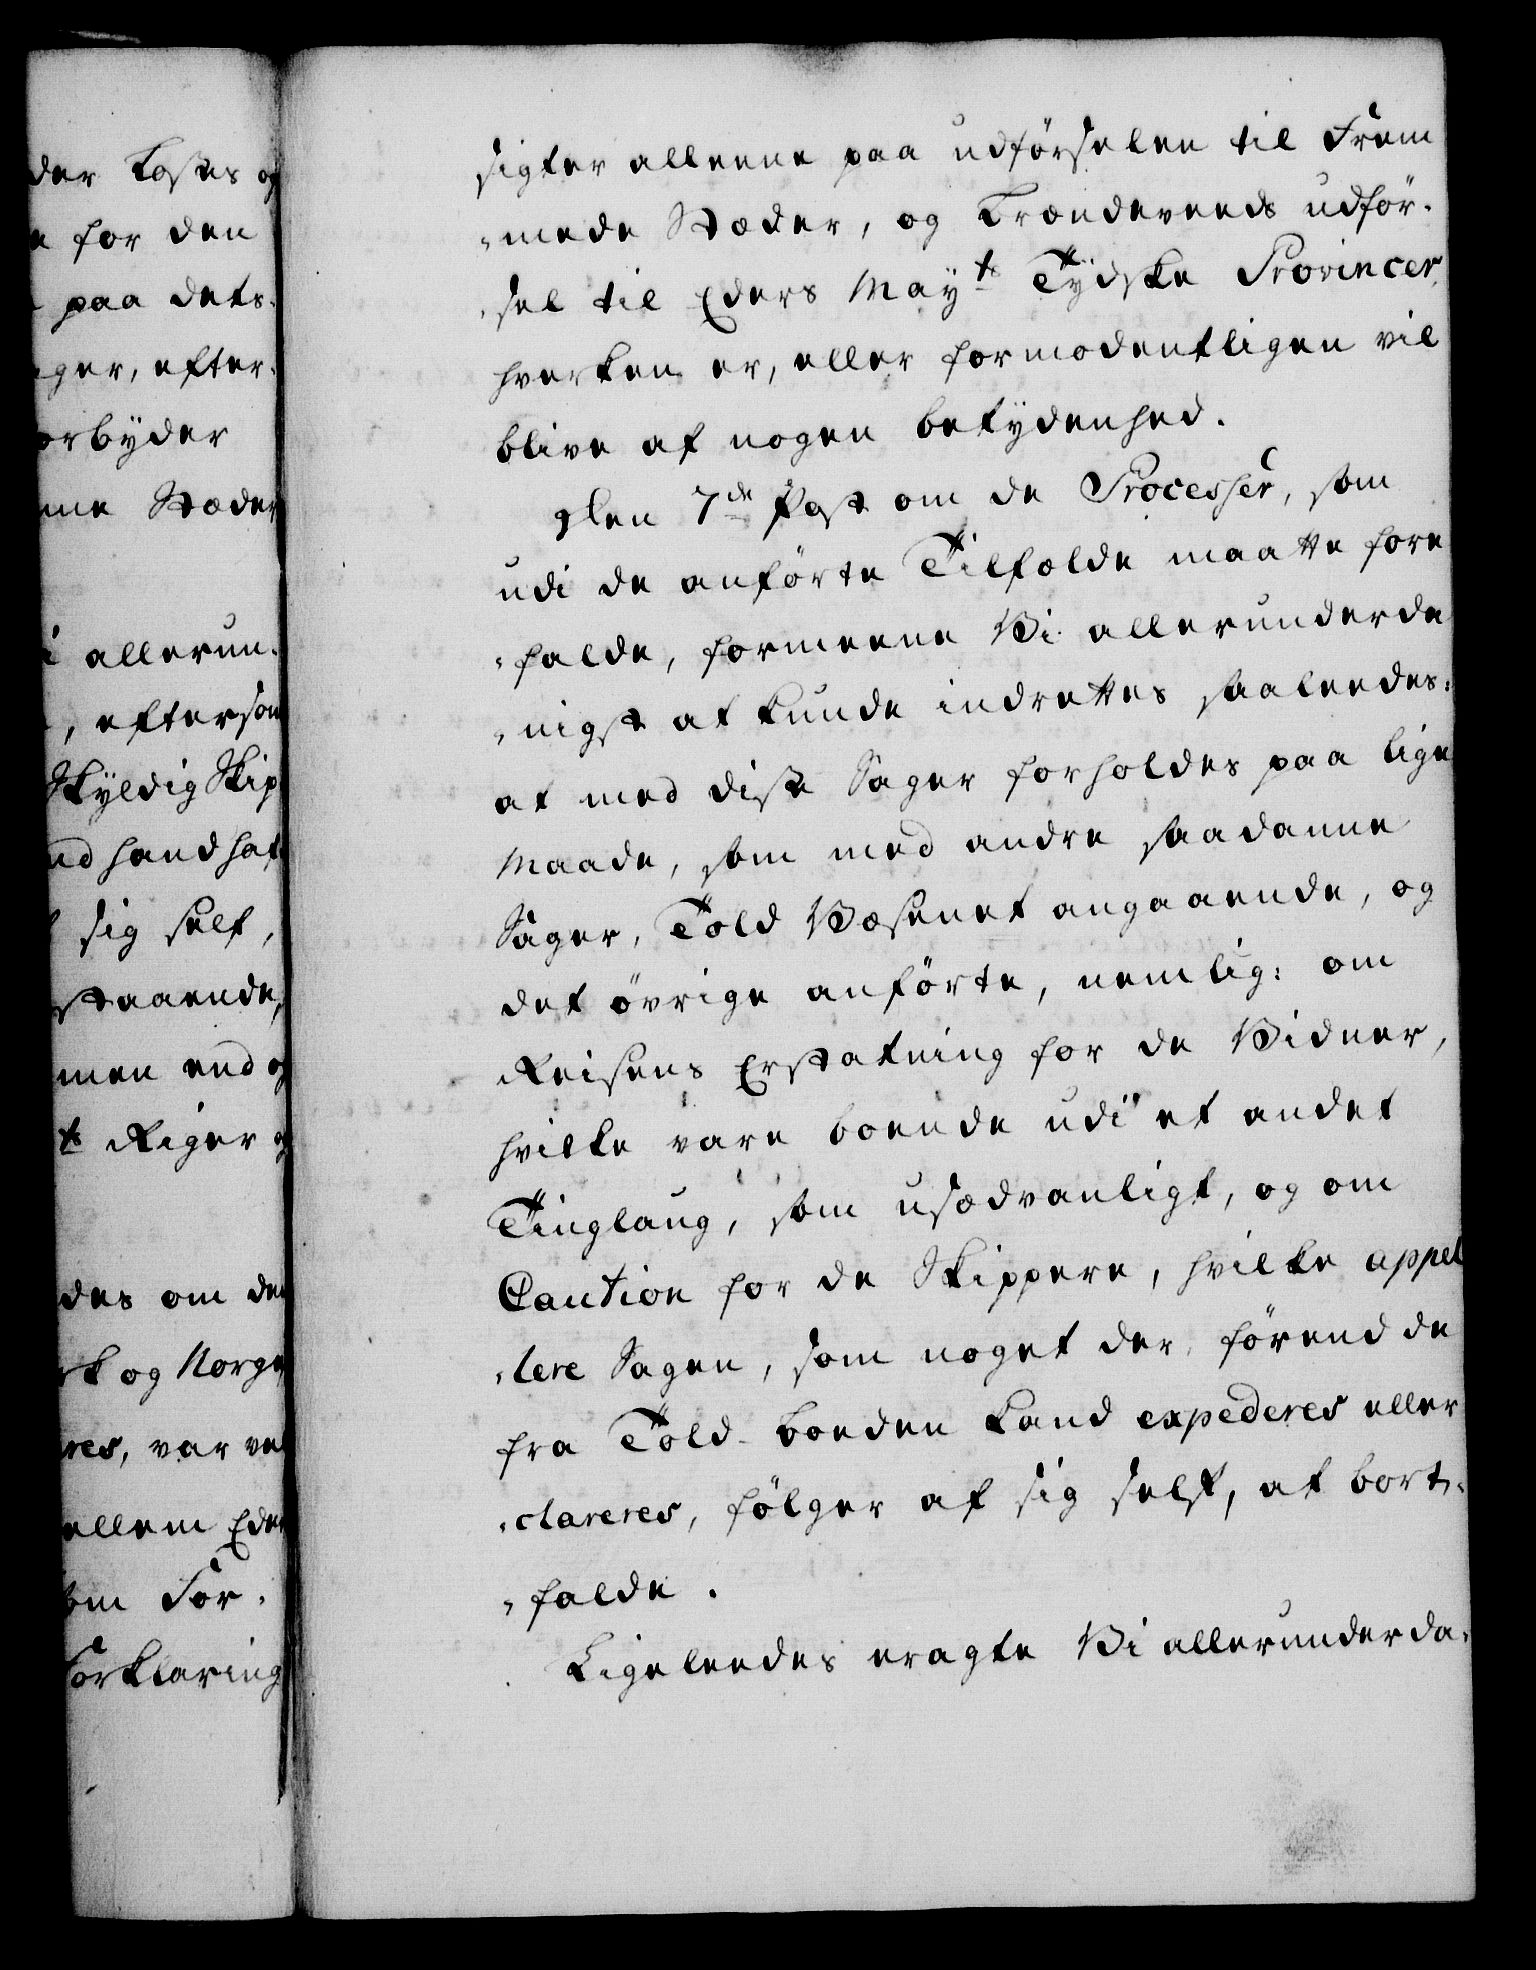 der Kostes og
for den
paa dets-
ger, efter-
orbyder
me Stæder
allerun-
, eftersom
Skyldig Skip
nd handhaf
sig self,
staaende,
men end og
ts Riger og
des om den
rk og Norge
res, var ve
ellem Eders
om For-
Forklaring
sigter alleene paa udförselen til Frem
-mede Stæder, og Brændeveeds udför-
-sel til Eders Mayts Tydske Provincer,
hverken er, eller formodentligen vil
blive af nogen betydenhed.
Den 7de Post om de Processer, som
udi de anförte Tilfælde maatte fore
-falde, formeene Vi allerunderda
-nigst at kunde indrettes saaleedes:
at med disse Sager forholdes paa lige
Maade, som med andre saadanne
Sager, Told Væsenet angaaende, og
det övrige anförte, nemlig: om
Reisens Erstatning for de Vidner,
hvilke vare boende udi et andet
Tinglaug, som usædvanligt, og om
Caution for de Skippere, hvilke appel
-lere Sagen, som noget der, förend de
fra Told-boeden kand expederes eller
-clareres, fölger af sig selft, at bort-
-falde.
Ligeleedes eragte Vi allerunderda-